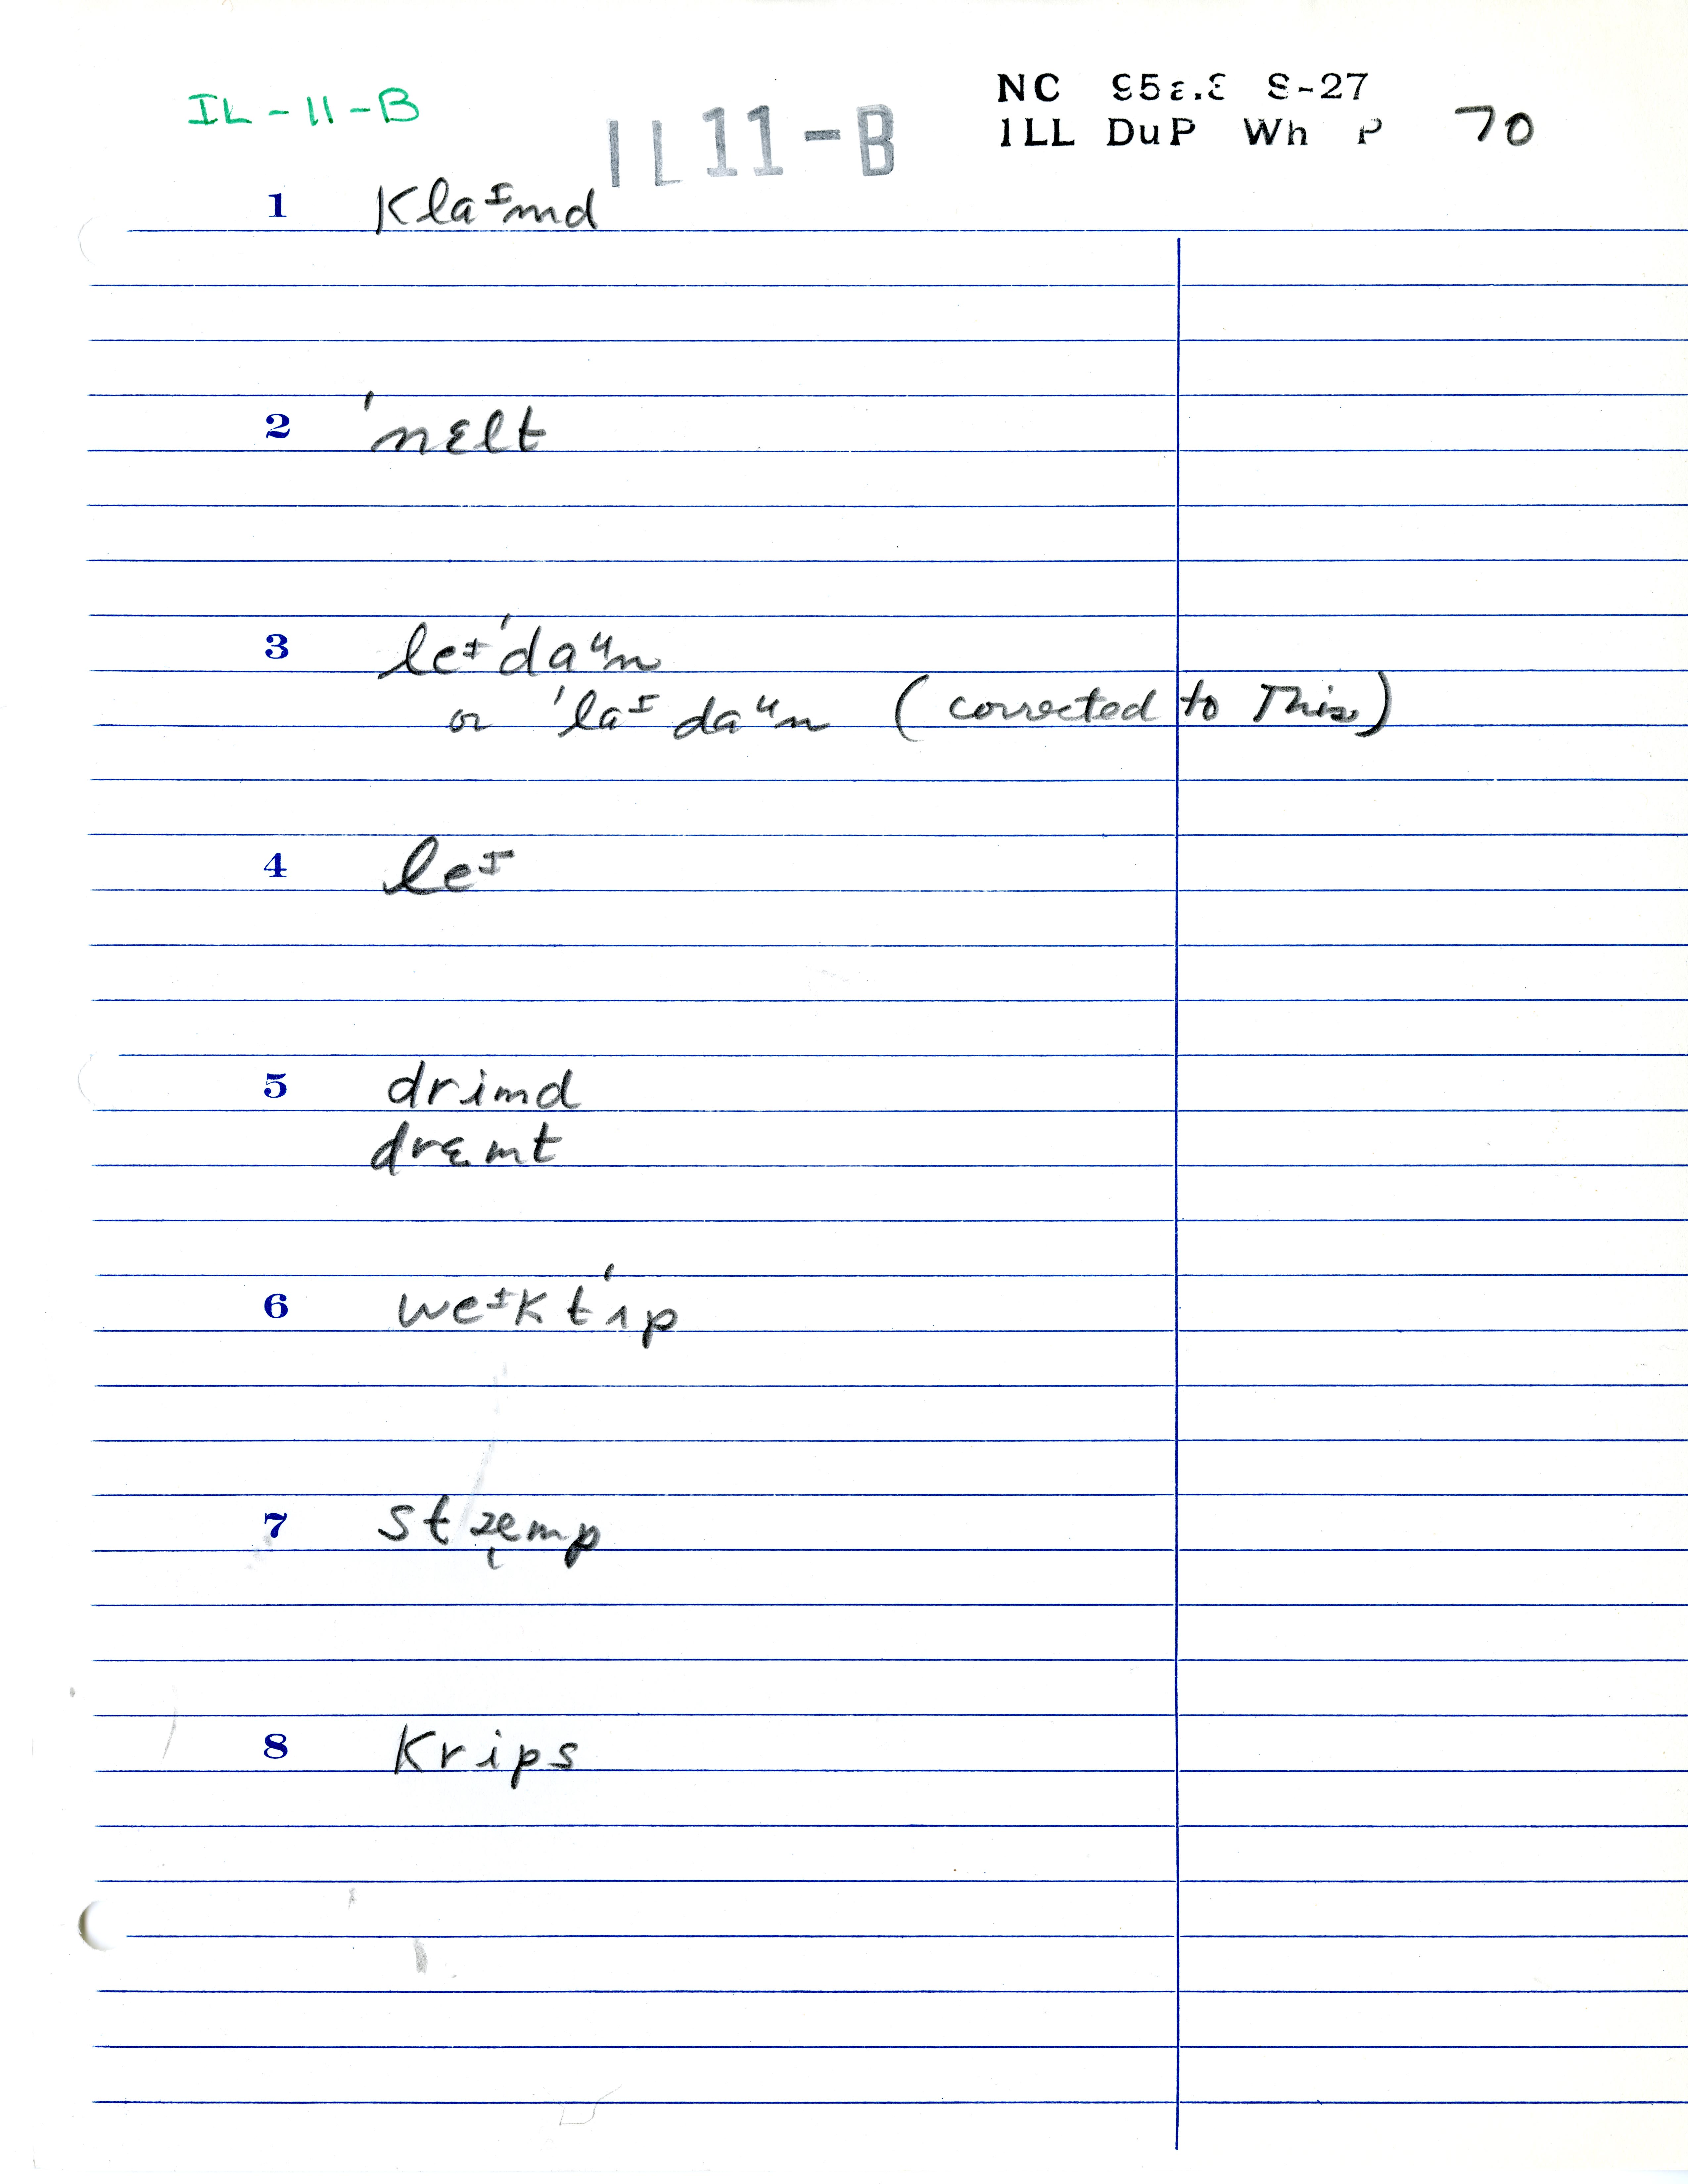 IL-11-B
IL11-B
NC 95 S-27
ILL DuP Wh P 70
1 klaᴵmd
2 ˈnɛlt
3 leᴵˈdaᵘn
or ˈlaᴵ daᵘn (corrected to This)
4 leᴵ
5 drimd
drɛmt
6 weᴵk tˈʌp
7 stæmp
8 krips